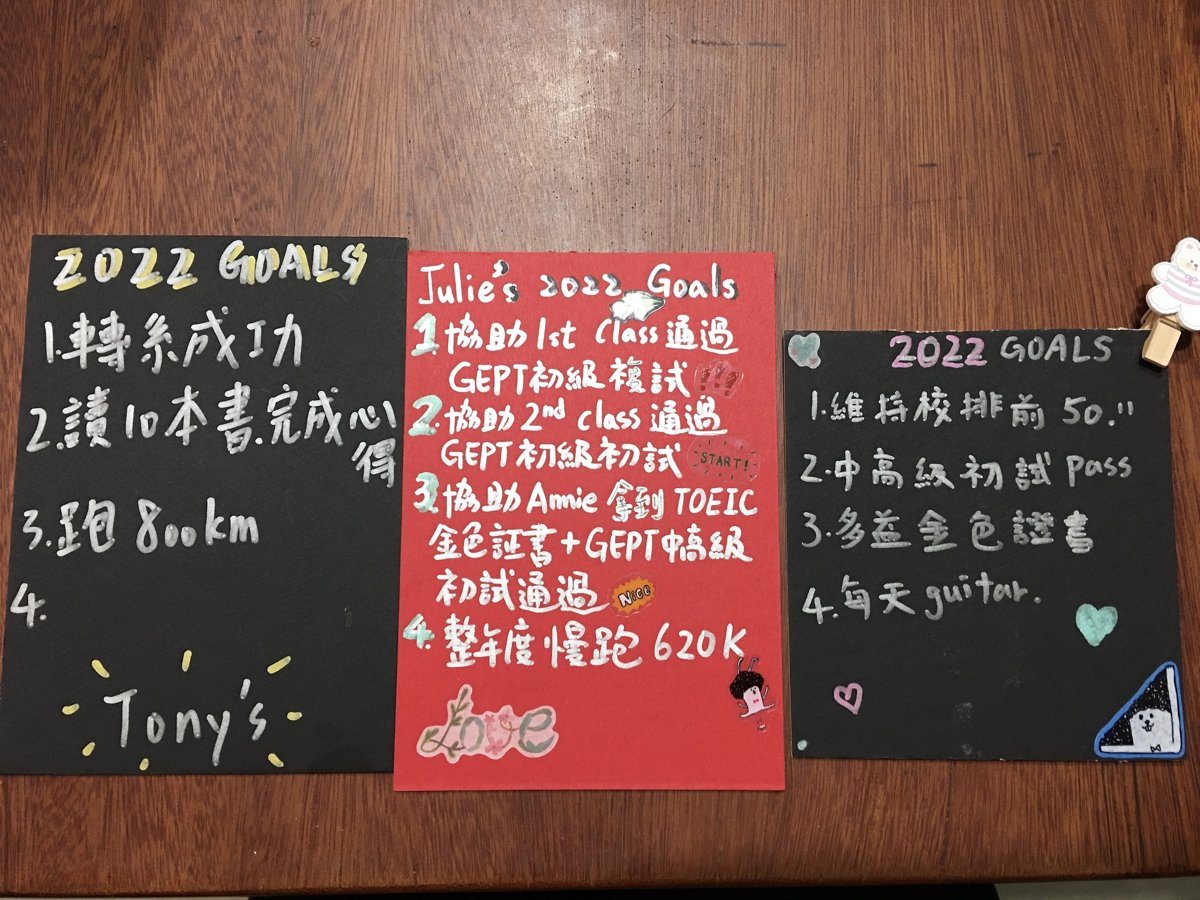 2022 GOALS
1.轉系成功
2.讀10本書.完成心
得
3.跑800km
4.
Tony's
Julie's 2022 Goals
1.協助1st Class通過
GEPT初級複試!!!
2.協助2nd class通過
GEPT初級初試 START!
3.協助Annie拿到TOEIC
金色証書+GEPT中高級
初試通過 NICE
4.整年度慢跑620K
Love
2022 GOALS
1.維持校排前50.!!
2.中高級初試pass
3.多益金色證書
4.每天guitar.